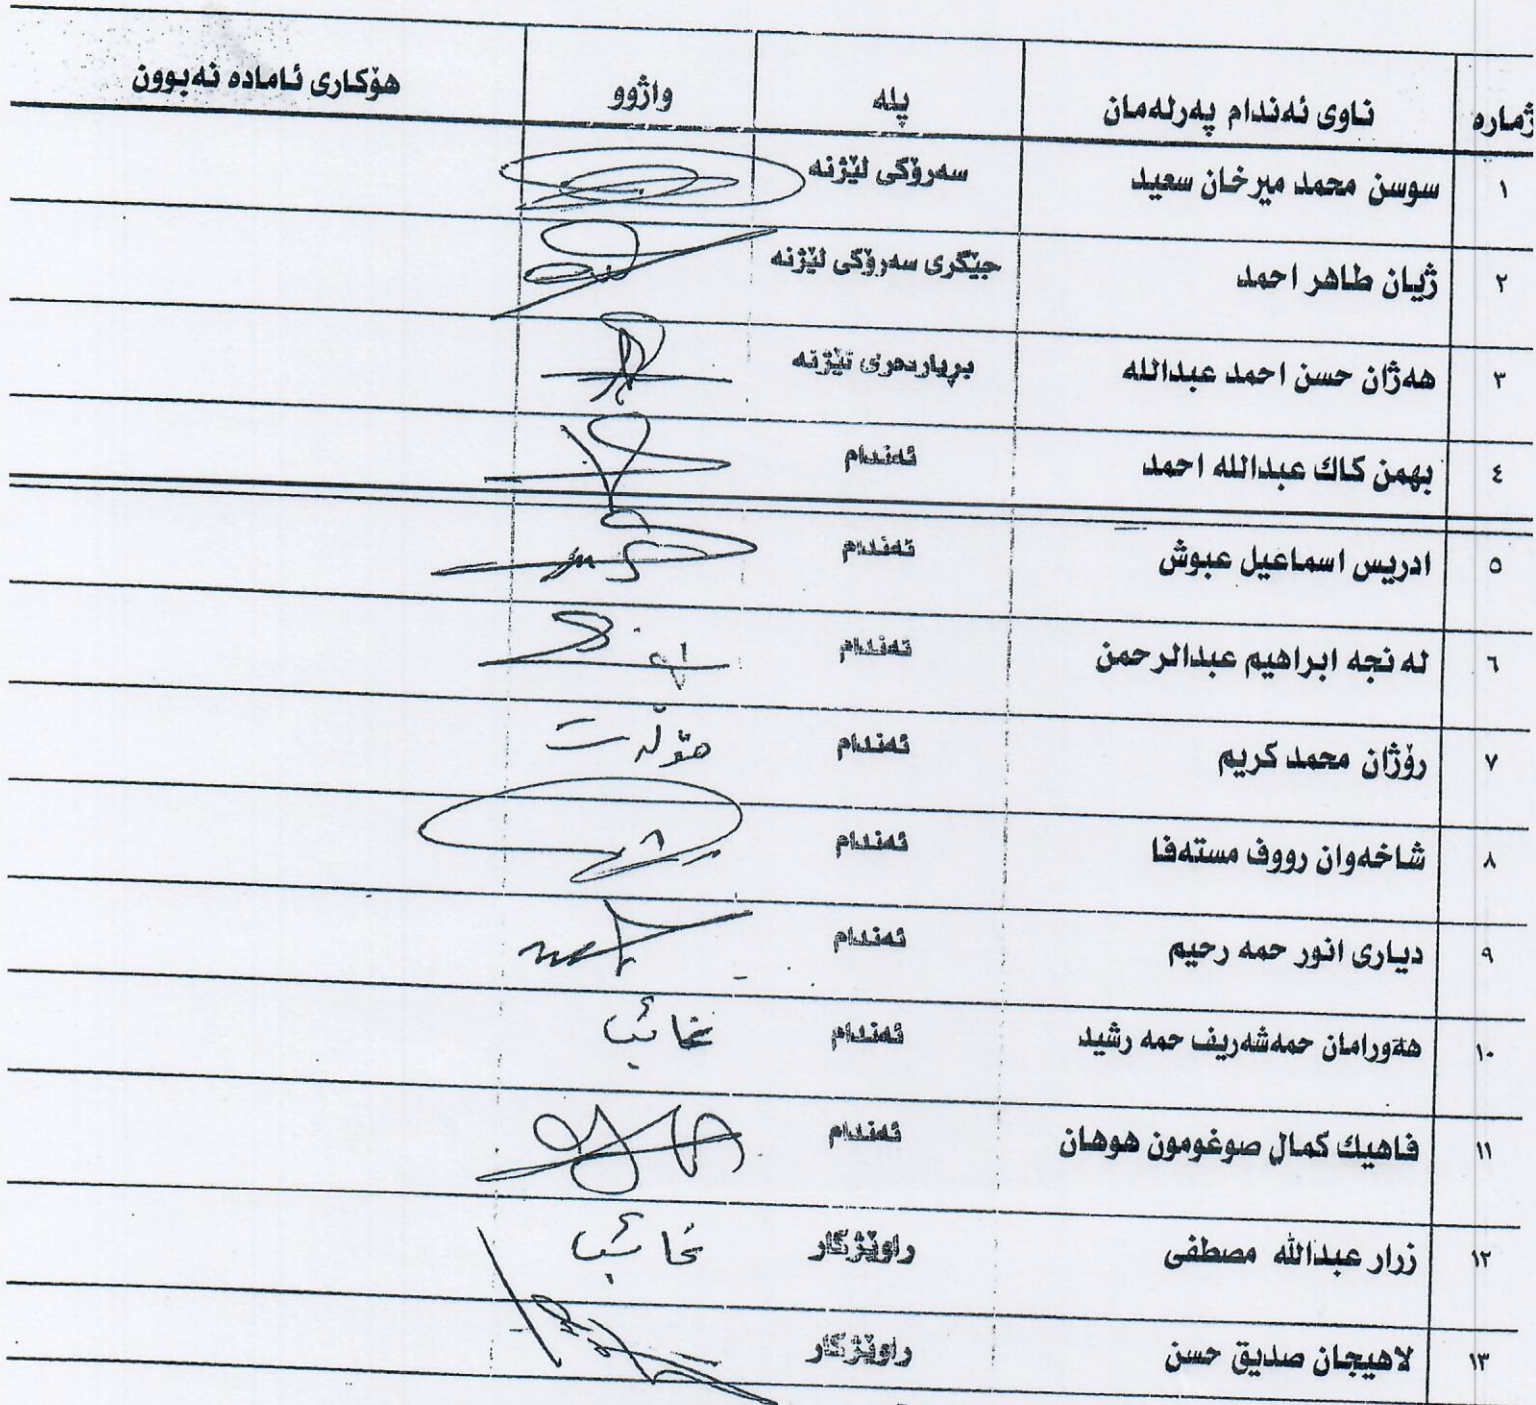 ژمارە ناوی ئەندام پەرلەمان پلە واژوو هۆکاری ئامادە نەبوون
١ سوسن محمد میرخان سعید سەرۆکی لێژنە
٢ ژیان طاهر احمد جێگری سەرۆکی لێژنە
٣ هەژان حسن احمد عبدالله بڕیاردەری لێژنە
٤ بهمن كاك عبدالله احمد ئەندام
٥ ادریس اسماعیل عبوش ئەندام
٦ لە نجە ابراهیم عبدالرحمن ئەندام
٧ رۆژان محمد کریم ئەندام مۆڵەت
٨ شاخەوان رووف مستەفا ئەندام
٩ دیاری انور حمە رحیم ئەندام
١٠ هەورامان حمەشەریف حمە رشید ئەندام غائب
١١ فاهیك کمال صوغومون هوهان ئەندام
١٢ زرار عبدالله مصطفی راوێژکار غائب
١٣ لاهیجان صدیق حسن راوێژکار